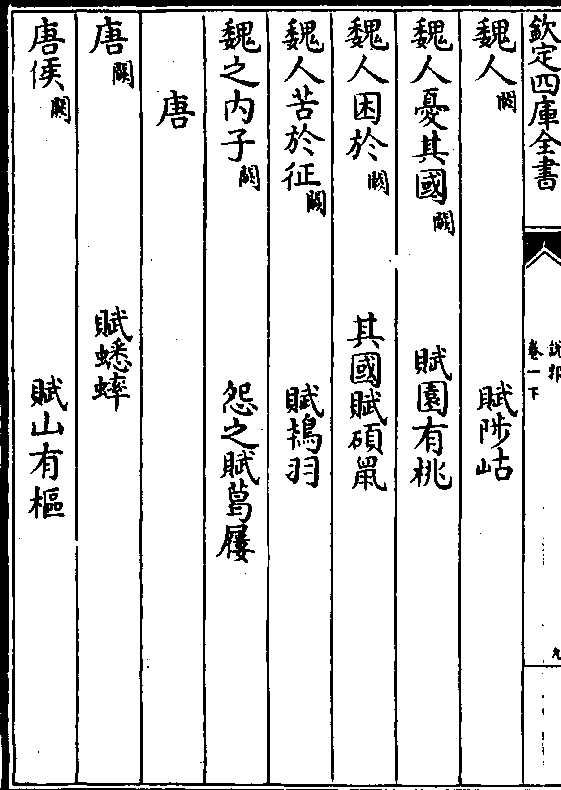 欽定四庫全書
說郛
卷一下
九
魏人闕 賦陟岵
魏人憂其國闕 賦園有桃
魏人困於闕 其國賦碩鼠
魏人苦於征闕 賦鴇羽
魏之內子闕 怨之賦葛屨
唐
唐闕 賦蟋蟀
唐侯闕 賦山有樞